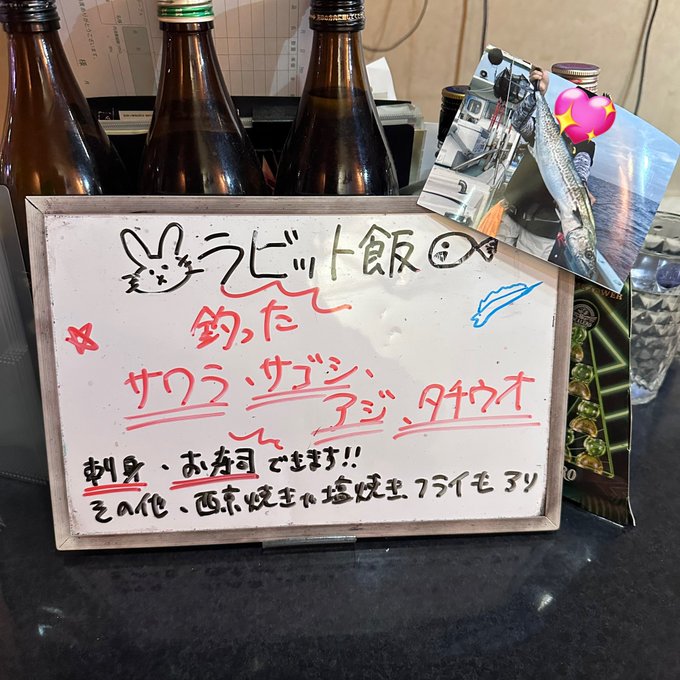 ラビット飯
釣った
サワラ、サゴシ、
アジ、タチウオ
刺身、お寿司できます!!
その他、西京焼きや塩焼き、フライもアリ